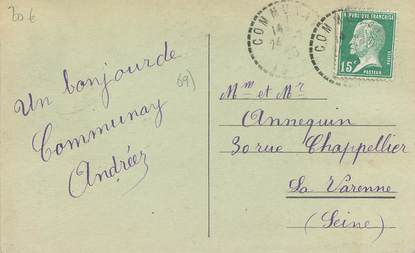 20 €
Un bonjour de
Communay
Andrée
69)
COMMUNAY
REPUBLIQUE FRANCAISE
15c
PASTEUR
Mme et Mr
Annequin
30 rue Chappellier
La Varenne
(Seine)